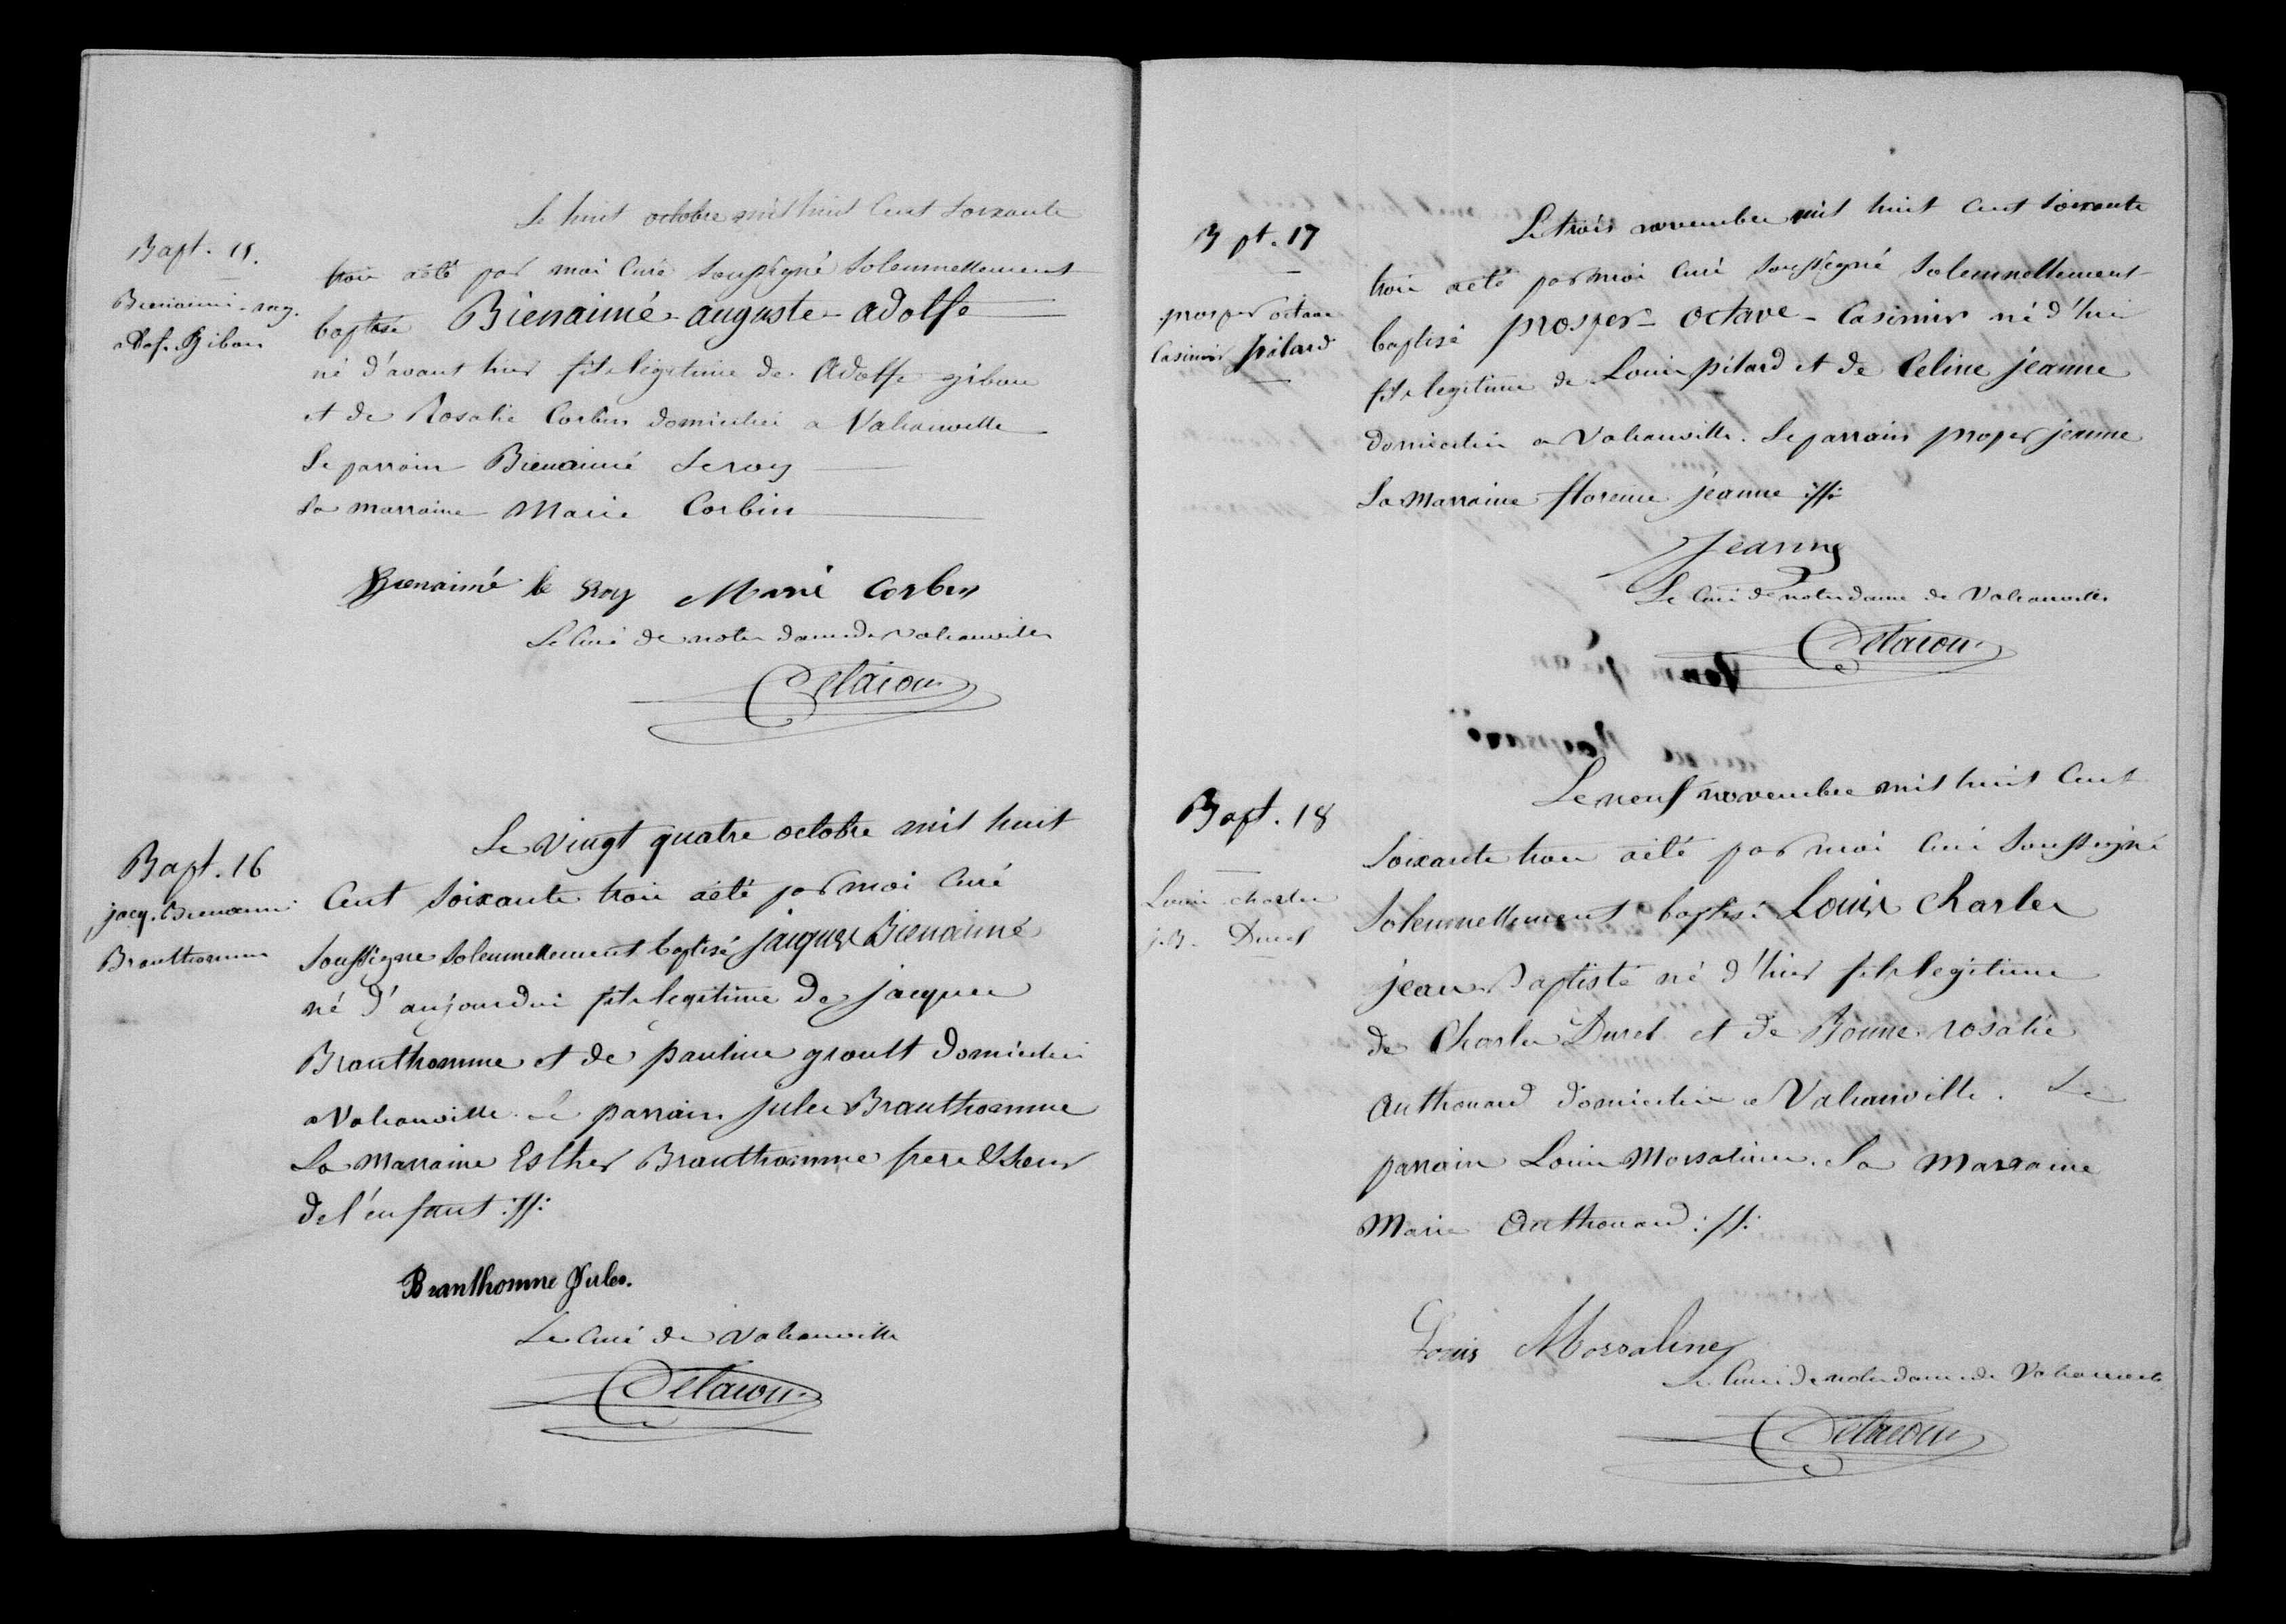 Bapt. 15.
Bienaimé-aug.
adof. Giban
Le huit octobre mil huit Cent soixante
trois a été par moi Curé soussigné solemnellement
baptisé Bienaimé-auguste-adolfe
né d'avant hier fils légitime de Adolfe giban
et de Rosalie Corbin domiciliés a Valcanville
Le parrain Bienaimé Leroy
La marraine Marie Corbin
Bienaimé le Roy Marie Corbin
Le Curé de notre dame de valcanville
Delacour
Bapt. 16
jacq. Bienaimé
Branthomme
Le vingt quatre octobre mil huit
Cent soixante trois a été par moi Curé
soussigné solemnellement baptisé jacques Bienaimé
né d'aujourdui fils legitime de jacques
Branthomme et de pauline groult domiciliés
a Valcanville. Le parrain jules Branthomme
La Marraine Esther Branthomme frere & soeur
de l'enfant
Branthomme Jules.
Le Curé de Valcanville
Delacour
Bapt. 17
prosper octave
Casimir pitard
Le trois novembre mil huit Cent soixante
trois a été par moi Curé soussigné solemnellement
baptisé prosper-octave-Casimir né d'hier
fils legitime de Louis pitard et de Celine jeanne
domiciliés a Valcanville. Le parrain proper jeanne
La Marraine florence jeanne
Jeanne
Le Curé de notre dame de Valcanville
Delacour
Bapt. 18
Louis charles
j.B. Duret
Le neuf novembre mil huit Cent
soixante trois a été par moi Curé soussigné
solemnellement baptisé Louis Charles
jean Baptiste né d'hier fils legitime
de Charles Duret et de Bonne rosalie
Anthouard domiciliés a Valcanville. Le
parrain Louis Morsalines. La Marraine
Marie Anthouard
Louis Morsalines
Le Curé de notre dame de Valcanville
Delacour